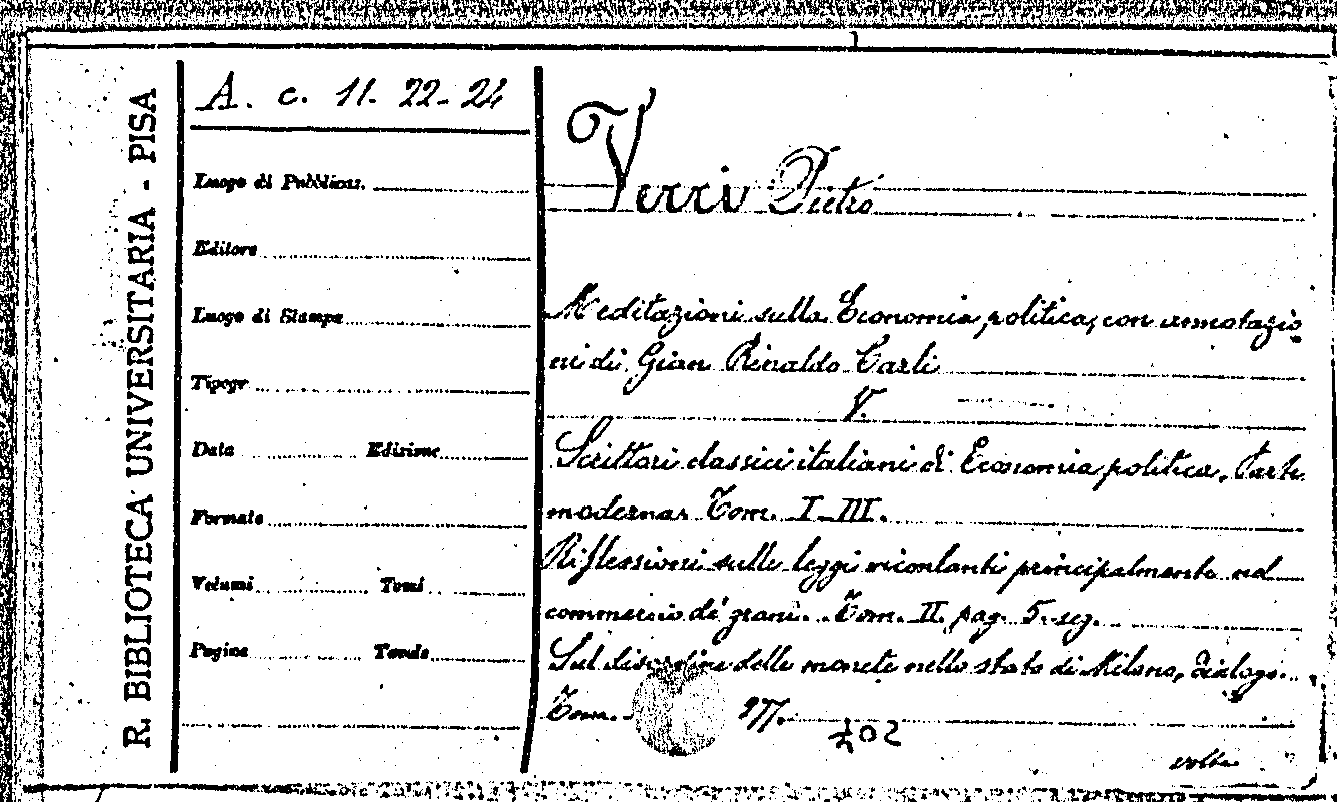 R. BIBLIOTECA UNIVERSITARIA - PISA
A. c. 11. 22-24
Luogo di Pubblicaz.
Editore
Luogo di Stampa
Tipogr
Data Edizione
Formato
Volumi Tomi
Pagine Tavole
Verri Pietro
Meditazioni sulla Economia politica, con annotazio
ni di Gian Rinaldo Carli
V.
Scrittori classici italiani di Economia politica. Parte
moderna. Tom. I-III.
Riflessioni sulle leggi vincolanti principalmente nel
commercio de' grani. Tom. II. pag. 5. seg.
Sul disordine delle monete nello stato di Milano, dialogo
Tom. 277.
volta